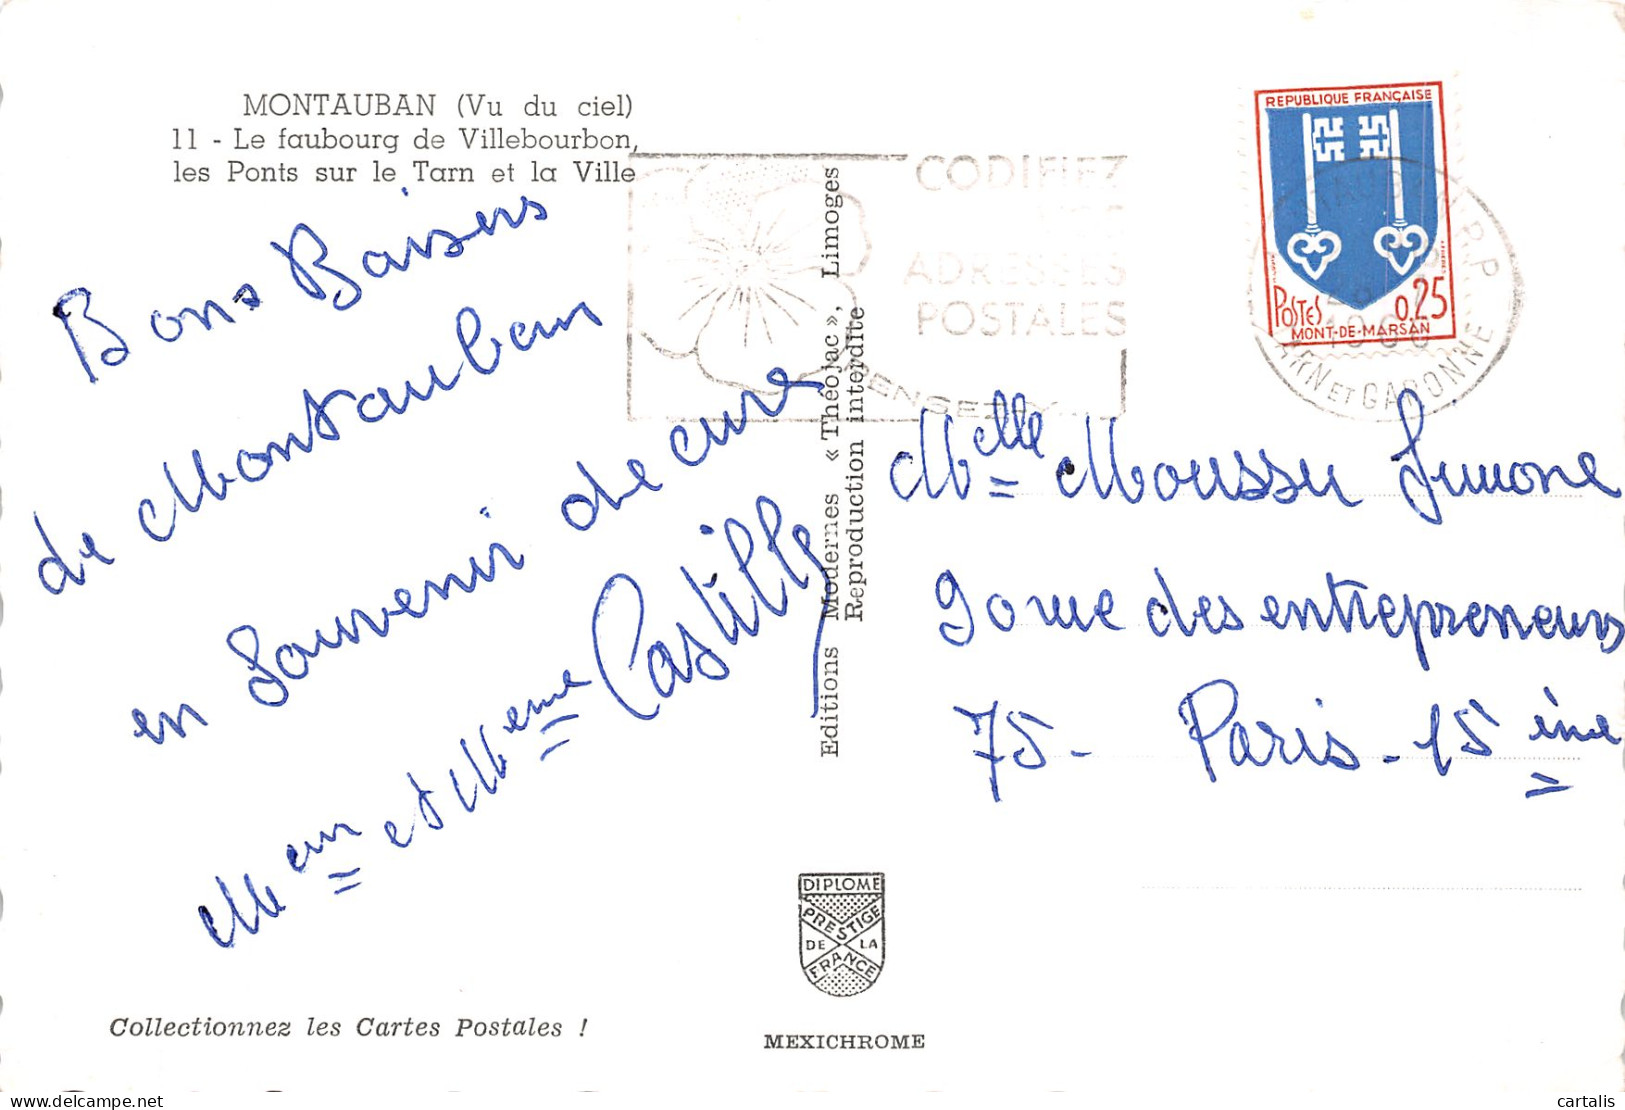 MONTAUBAN (Vu du ciel)
11 - Le faubourg de Villebourbon,
les Ponts sur le Tarn et la Ville
Bons Baisers
de Montauban
en Souvenir de cure
Meur et Meme Castilly
Editions Modernes « Théojac », Limoges
Reproduction interdite
CODIFIEZ
VOS
ADRESSES
POSTALES
PENSEZ-Y...
REPUBLIQUE FRANÇAISE
POSTES 0,25
MONT-DE-MARSAN
TARN ET GARONNE
Melle Moussu Simone
90 rue des entrepreneurs
75 - Paris - 15ème
DIPLOME
PRESTIGE
DE LA
FRANCE
MEXICHROME
Collectionnez les Cartes Postales !
delcampe.net
cartalis